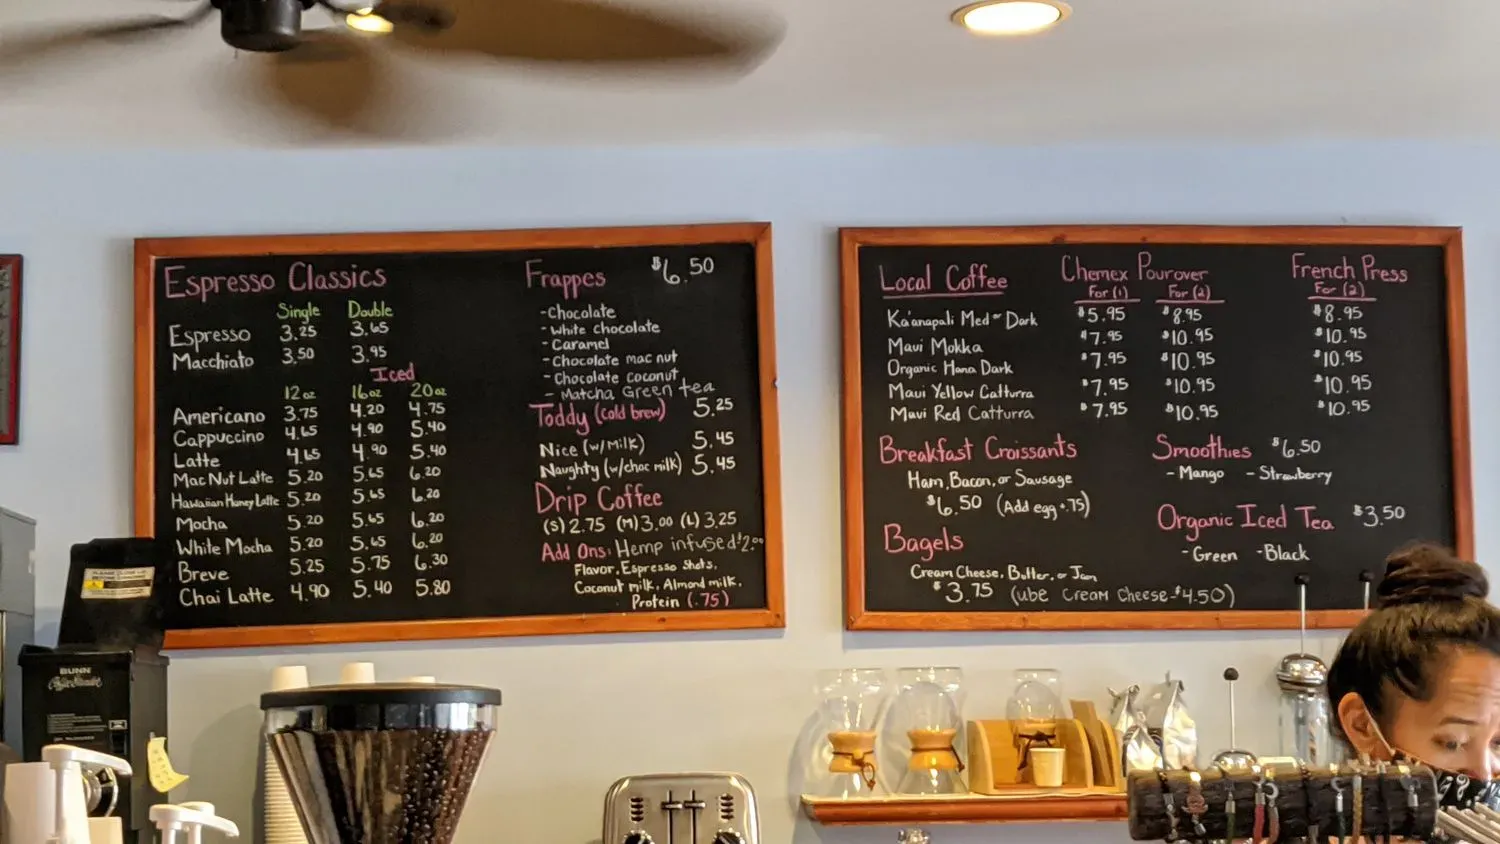 Espresso Classics
Single Double
Espresso 3.25 3.65
Macchiato 3.50 3.95
Iced
12oz 16oz 20oz
Americano 3.75 4.20 4.75
Cappuccino 4.65 4.90 5.40
Latte 4.65 4.90 5.40
Mac Nut Latte 5.20 5.65 6.20
Hawaiian Honey Latte 5.20 5.65 6.20
Mocha 5.20 5.65 6.20
White Mocha 5.20 5.65 6.20
Breve 5.25 5.75 6.30
Chai Latte 4.90 5.40 5.80
Frappes $6.50
- Chocolate
- White chocolate
- Caramel
- Chocolate mac nut
- Chocolate coconut
- Matcha Green tea
Toddy (cold brew) 5.25
Nice (w/Milk) 5.45
Naughty (w/choc milk) 5.45
Drip Coffee
(S) 2.75 (M) 3.00 (L) 3.25
Add Ons: Hemp infused $2.00
Flavor, Espresso Shots,
Coconut milk, Almond milk,
Protein (.75)
Local Coffee Chemex Pourover French Press
For (1) For (2) For (2)
Ka'anapali Med or Dark $5.95 $8.95 $8.95
Maui Mokka $7.95 $10.95 $10.95
Organic Hana Dark $7.95 $10.95 $10.95
Maui Yellow Catturra $7.95 $10.95 $10.95
Maui Red Catturra $7.95 $10.95 $10.95
Breakfast Croissants
Ham, Bacon, or Sausage
$6.50 (Add egg +.75)
Bagels
Cream Cheese, Butter, or Jam
$3.75 (ube cream cheese-$4.50)
Smoothies $6.50
- Mango - Strawberry
Organic Iced Tea $3.50
- Green - Black
BUNN